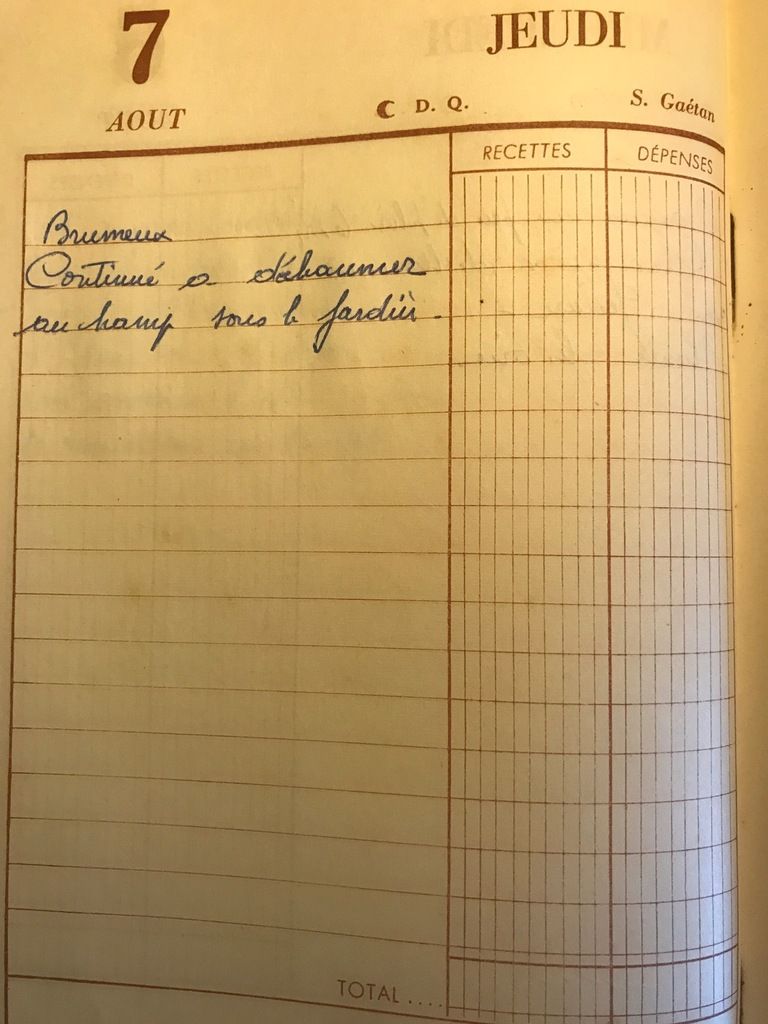 7 JEUDI
AOUT ☾ D. Q. S. Gaétan
RECETTES DÉPENSES
Brumeux
Continué a déhaumer
au hamp sous le jardin.
TOTAL ....